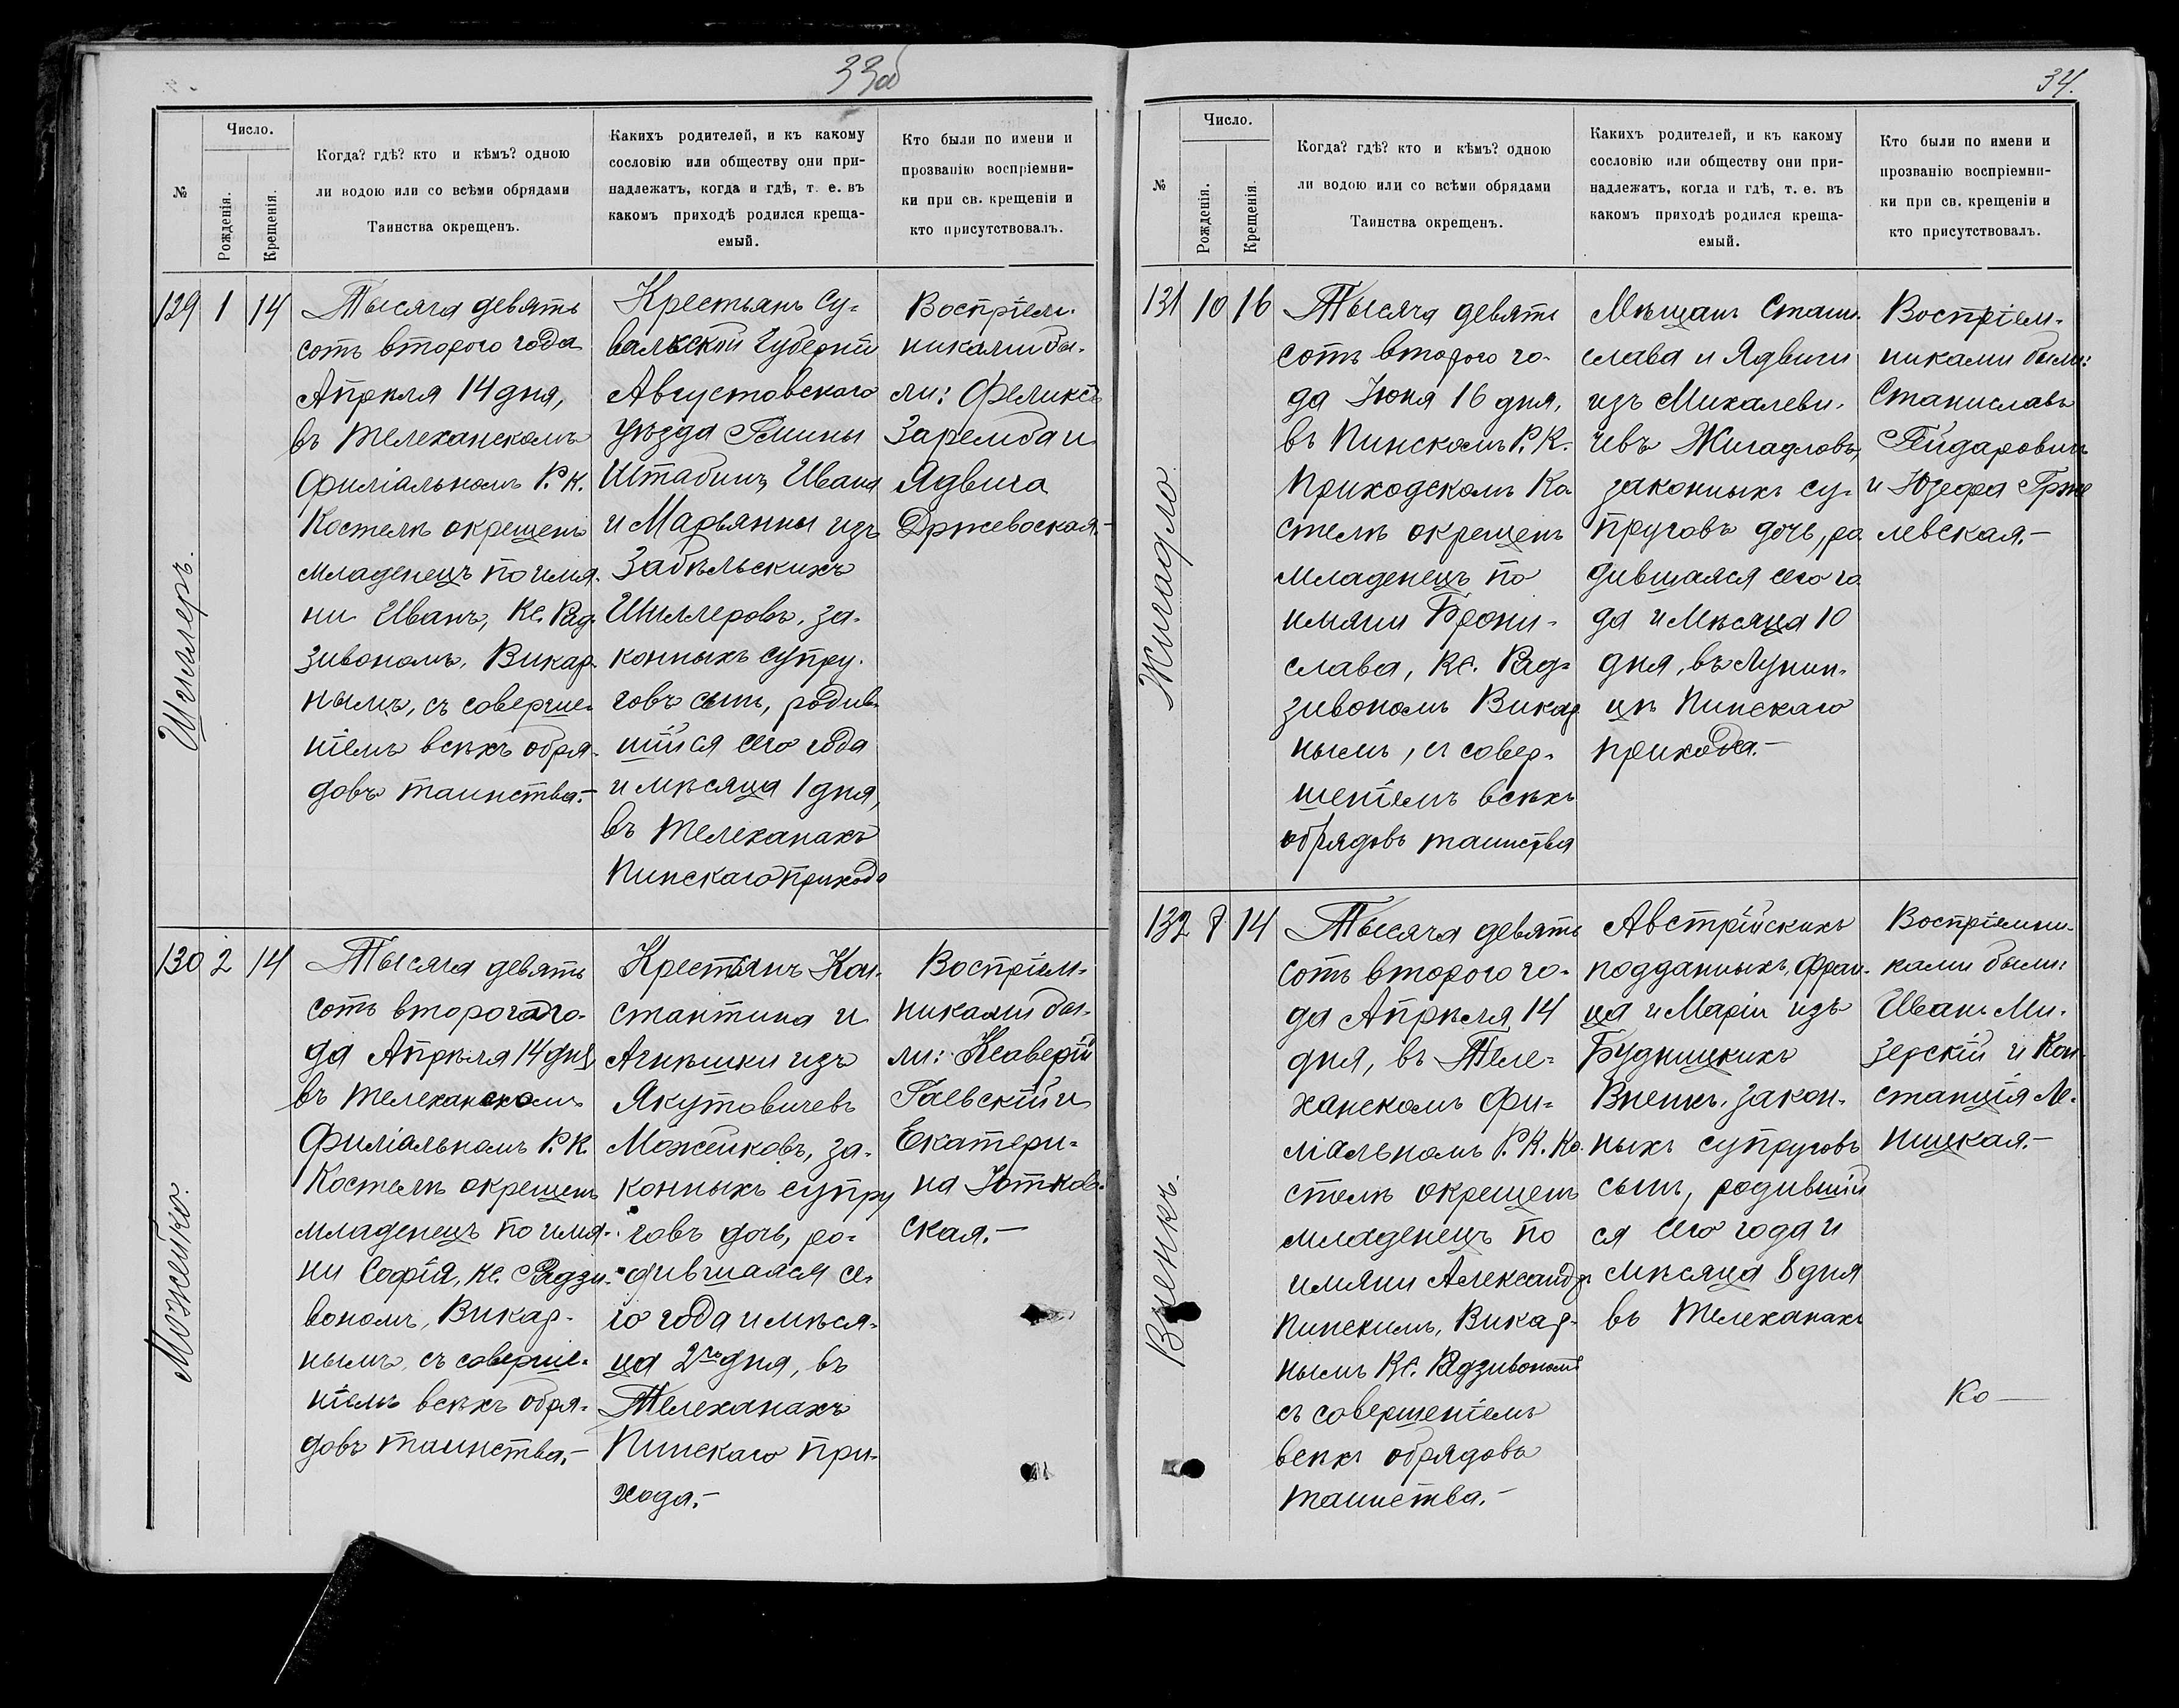 33об
№
Число.
Рожденія.
Крещенія.
Когда? гдѣ? кто и кѣмъ? одною
ли водою или со всѣми обрядами
Таинства окрещенъ.
Какихъ родителей, и къ какому
сословію или обществу они при-
надлежатъ, когда и гдѣ, т. е. въ
какомъ приходѣ родился креща-
емый.
Кто были по имени и
прозванію воспріемни-
ки при св. крещеніи и
кто присутствовалъ.
129 1 14
Шиллеръ.
Тысяча девять
сотъ второго года
Апрѣля 14 дня,
въ Телеханскомъ
Филіальномъ Р. К.
Костелѣ окрещенъ
младенецъ по имя-
ни Иванъ, Кс. Рад-
зивономъ, Викар-
нымъ, съ соверше-
ніемъ всѣхъ обря-
довъ таинства.-
Крестьянъ Су-
валкской Губерніи
Августовскаго
уѣзда Гмины
Штабинъ, Ивана
и Марьянны изъ
Забѣльскихъ
Шиллеровъ, за-
конныхъ супру-
говъ сынъ, родив-
шійся сего года
и мѣсяца 1 дня,
въ Телеханахъ
Пинскаго прихода
Воспріем-
никами бы-
ли: Феликсъ
Заремба и
Ядвига
Држевоская.-
130 2 14
Можейко.
Тысяча девять
сотъ второго го-
да Апрѣля 14 дня
въ Телеханскомъ
Филіальномъ Р. К.
Костелѣ окрещенъ
младенецъ по имя-
ни Софія, Кс. Радзи-
вономъ, Викар-
нымъ, съ соверше-
ніемъ всѣхъ обря-
довъ таинства.-
Крестьянъ Кон-
стантина и
Агнѣшки изъ
Якутовичевъ
Можейковъ, за-
конныхъ супру
говъ дочь, ро-
дившаяся се-
го года и мѣся-
ца 2го дня, въ
Телеханахъ
Пинскаго при-
хода.-
Воспріем-
никами бы-
ли: Ксаверій
Гаевскій и
Екатери-
на Ютков-
ская.-
34.
№
Число.
Рожденія.
Крещенія.
Когда? гдѣ? кто и кѣмъ? одною
ли водою или со всѣми обрядами
Таинства окрещенъ.
Какихъ родителей, и къ какому
сословію или обществу они при-
надлежатъ, когда и гдѣ, т. е. въ
какомъ приходѣ родился креща-
емый.
Кто были по имени и
прозванію воспріемни-
ки при св. крещеніи и
кто присутствовалъ.
131 10 16
Жигадло.
Тысяча девять
сотъ второго го-
да Іюня 16 дня,
въ Пинскомъ Р. К.
Приходскомъ Ко
стелѣ окрещенъ
младенецъ по
имяни Брони-
слава, Кс. Рад-
зивономъ Викар
нымъ, съ совер-
шеніемъ всѣхъ
обрядовъ таинства
Мѣщанъ Стани-
слава и Ядвиги
изъ Михалеви-
чевъ Жигадловъ,
законныхъ су-
пруговъ дочь, ро
дившаяся сего го
да и мѣсяца 10
дня, въ Лунин-
цѣ Пинскаго
прихода.-
Воспріем-
никами были:
Станиславъ
Гейдаровичъ
и Юзефа Грже
левская.-
132 8 14
Вненкъ.
Тысяча девять
сотъ второго го-
да Апрѣля 14
дня, въ Теле-
ханскомъ Фи-
ліальномъ Р. К. Ко-
стелѣ окрещенъ
младенецъ по
имяни Александръ
Пинскимъ, Викар-
нымъ Кс. Радзивономъ
съ совершеніемъ
всѣхъ обрядовъ
таинства.-
Австрійскихъ
подданныхъ, Фран-
ца и Маріи изъ
Будницкихъ
Вненкъ, закон-
ныхъ супруговъ
сынъ, родившій
ся сего года и
мѣсяца 8 дня
въ Телеханахъ
Воспріемни-
ками были:
Иванъ Ми-
зерскій и Кон-
станція Ле-
ницкая.-
Ко—